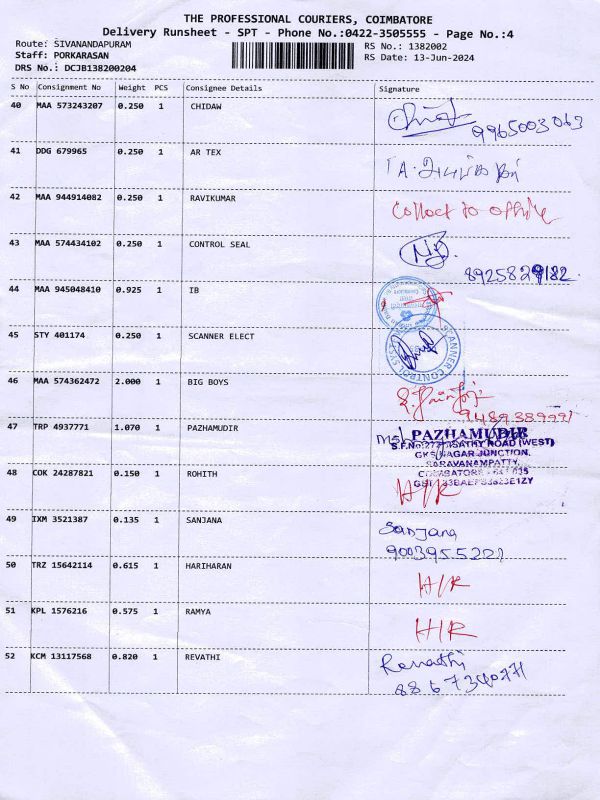 THE PROFESSIONAL COURIERS, COIMBATORE
Delivery Runsheet - SPT - Phone No.:0422-3505555 - Page No.:4
Route: SIVANANDAPURAM RS No.: 1382002
Staff: PORKARASAN RS Date: 13-Jun-2024
DRS No.: DCJB138200204
S No Consignment No Weight PCS Consignee Details Signature
40 MAA 573243207 0.250 1 CHIDAW
9965003063
41 DDG 679965 0.250 1 AR TEX
42 MAA 944914082 0.250 1 RAVIKUMAR Collect to office
43 MAA 574434102 0.250 1 CONTROL SEAL
8925829182
44 MAA 945048410 0.925 1 IB
45 STY 401174 0.250 1 SCANNER ELECT
SCANNER CONTROL
46 MAA 574362472 2.000 1 BIG BOYS
9489389991
47 TRP 4937771 1.070 1 PAZHAMUDIR PAZHAMUDIR
SATHY ROAD (WEST)
GKS NAGAR JUNCTION,
SARAVANAMPATTY,
48 COK 24287821 0.150 1 ROHITH COIMBATORE - 641 035
H/R
49 IXM 3521387 0.135 1 SANJANA Sanjana
9003955221
50 TRZ 15642114 0.615 1 HARIHARAN H/R
51 KPL 1576216 0.575 1 RAMYA H/R
52 KCM 13117568 0.820 1 REVATHI Revathi
8867340771